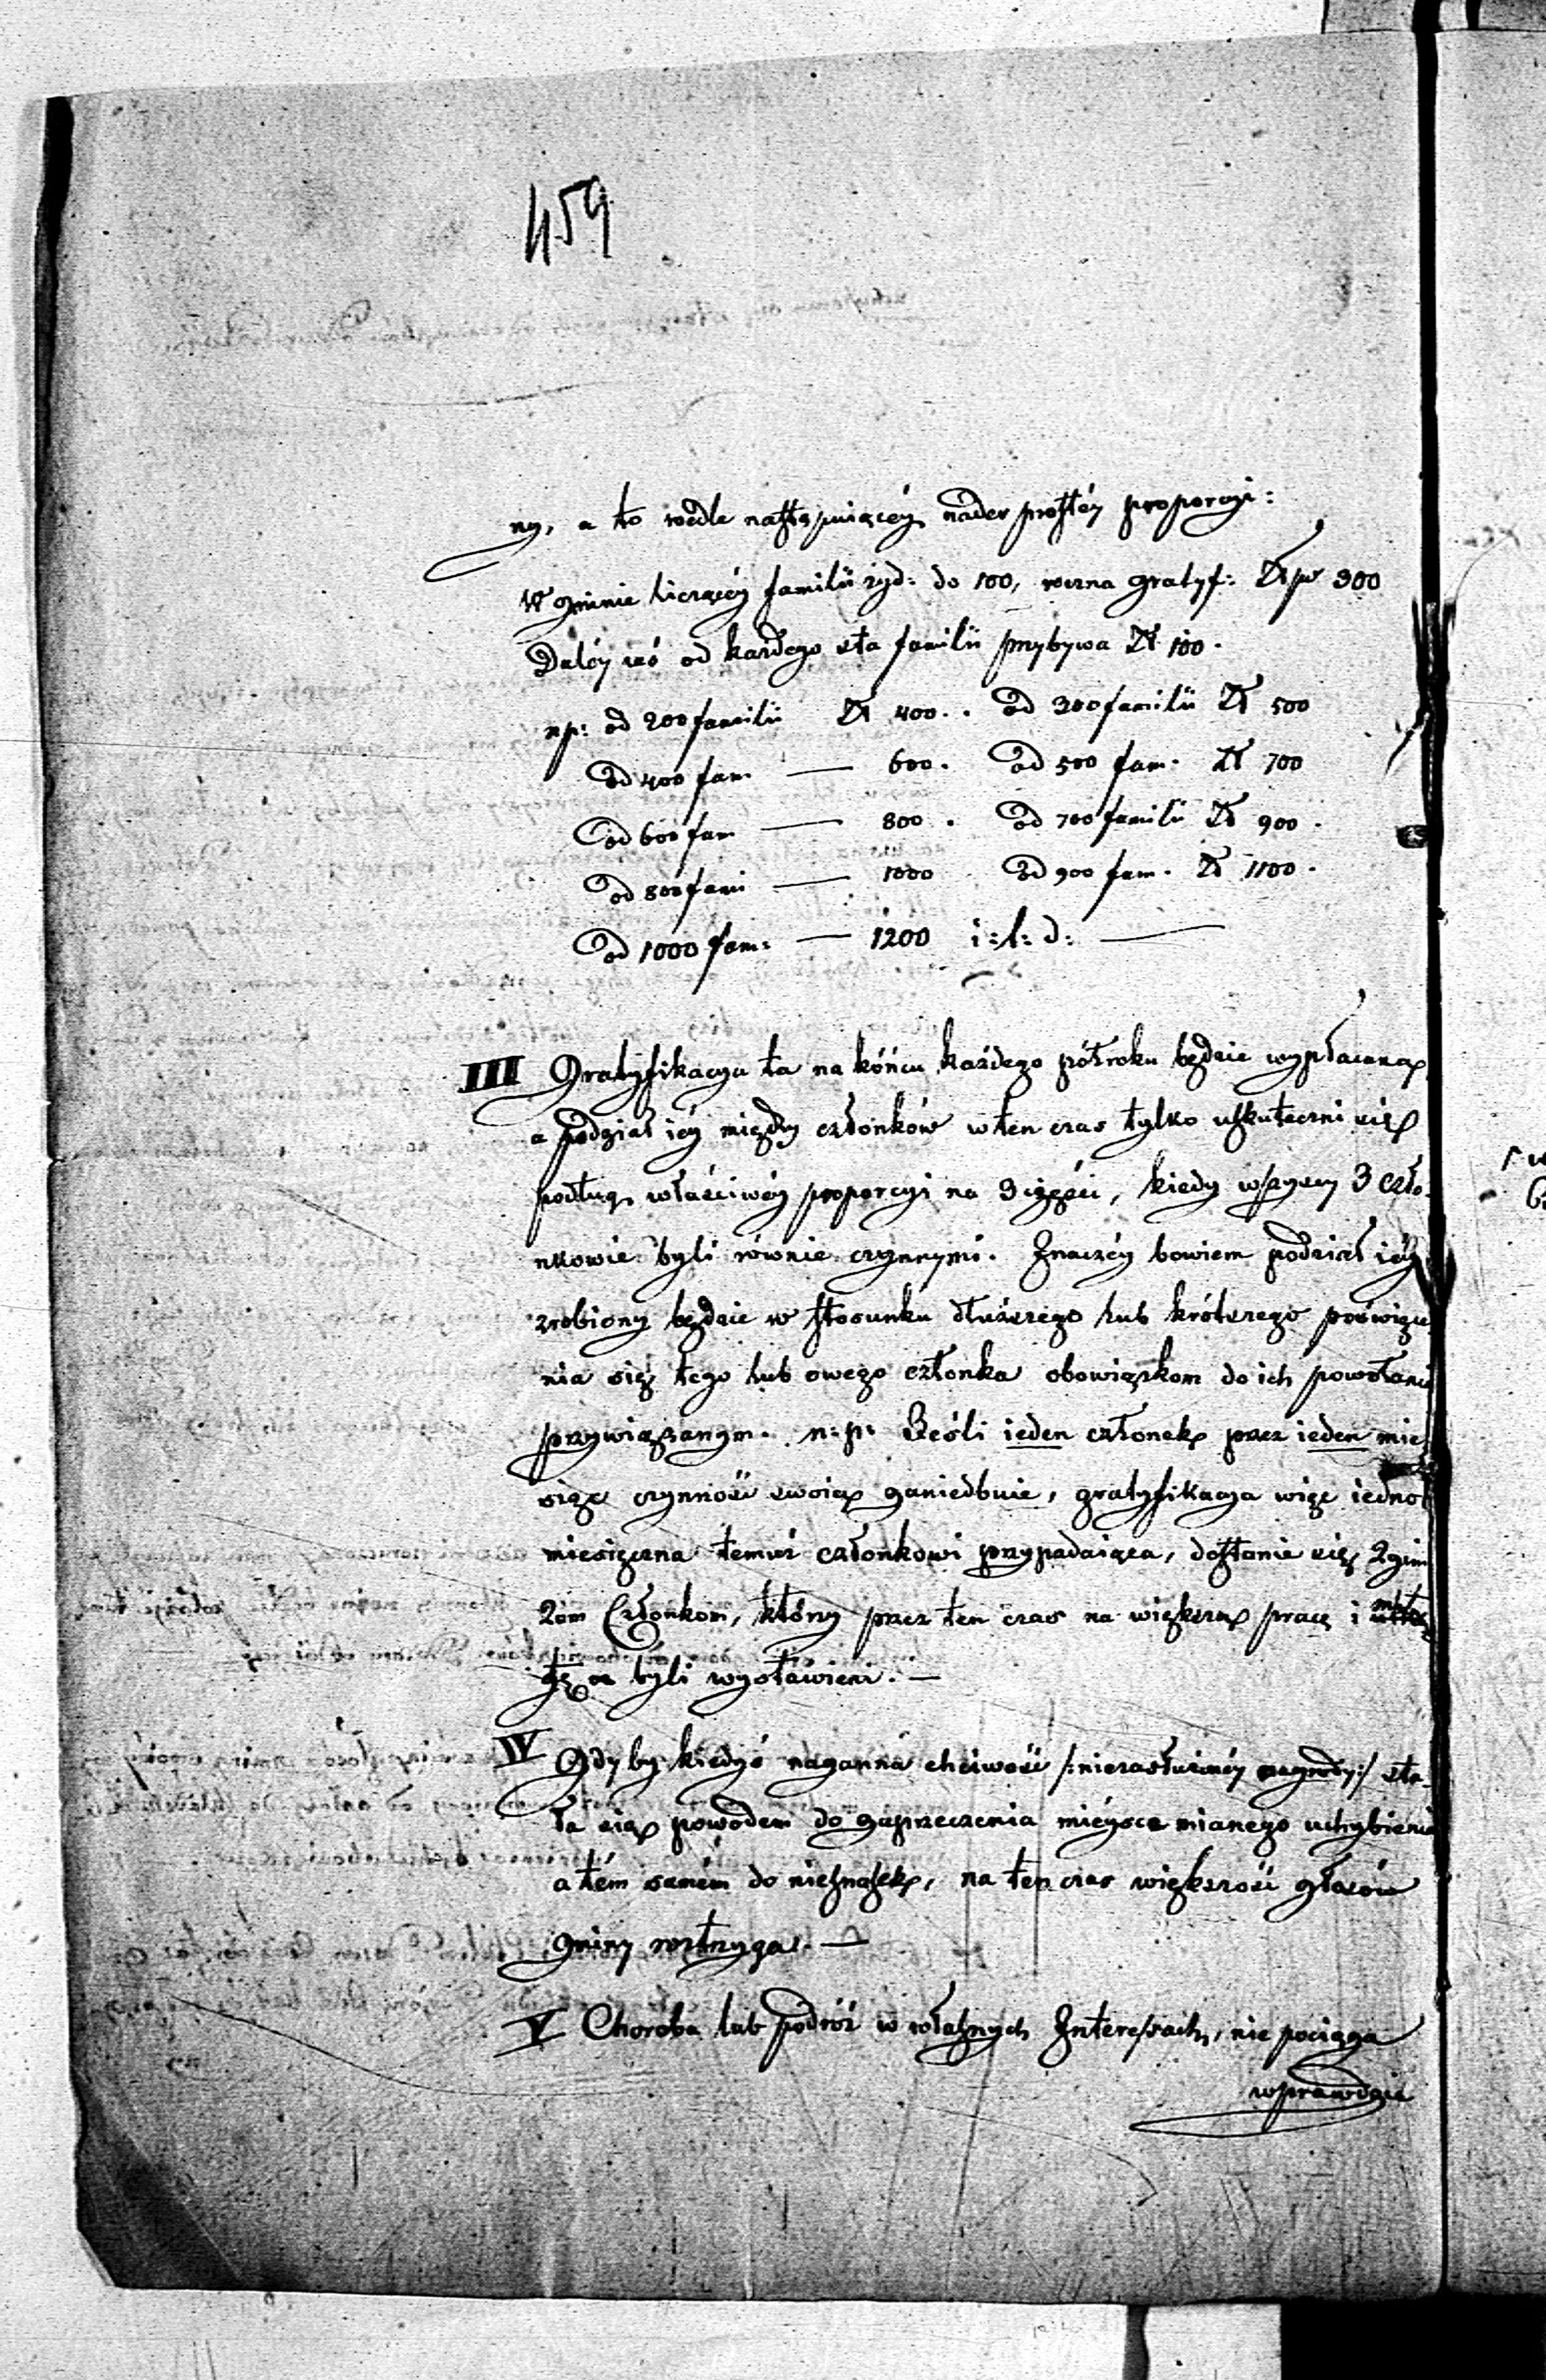 459
ny, a to wedle następuiącéy nader prostéy proporcyi:
W gminie liczącéy familii żyd: do 100, roczna gratyf: Zł p 300
Daléy zaś od każdego sta familii przybywa Zł 100.
np: od 200 familii Zł 400. . od 300 familii Zł 500
od 400 fam. — 600. od 500 fam. Zł 700
od 600 fam — 800 . od 700 familii Zł 900 .
od 800 fami — 1000 od 900 fam. Zł 1100 .
od 1000 fam: — 1200 i: t: d: —
III Gratyfikacya ta na końcu każdego półroku będzie wypłacaną
a podział iéy między członków w ten czas tylko uskuteczni się
podług właściwéy proporcyi na 3 części, kiedy wszyscy 3 czło-
nkowie byli równie czynnymi. Inaczéy bowiem podział iéy
zrobiony będzie w stosunku dłuższego lub krótszego poświęce
nia się tego lub owego członka obowiązkom do ich powołania
przywiązanym. n: p: Jeśli ieden członek przez ieden mie
siąc czynność swoią zaniedbuie, gratyfikacya więc iedno
miesięczna temuż członkowi przypadaiąca, dostanie się 2gim
2om Członkom, którzy przez ten czas na większą pracę i
byli wystawieni. —
IV Gdyby kiedyś naganna chciwość /: niezasłużonéy nagrody :/ sta-
ła się powodem do zaprzeczenia mieysce mianego uchybienia
a tém samém do niesnasek, na ten czas większość głosów
gminy roztrzyga. —
V Choroba lub podróż w własnych Interessach, nie pociąga
wprawdzie